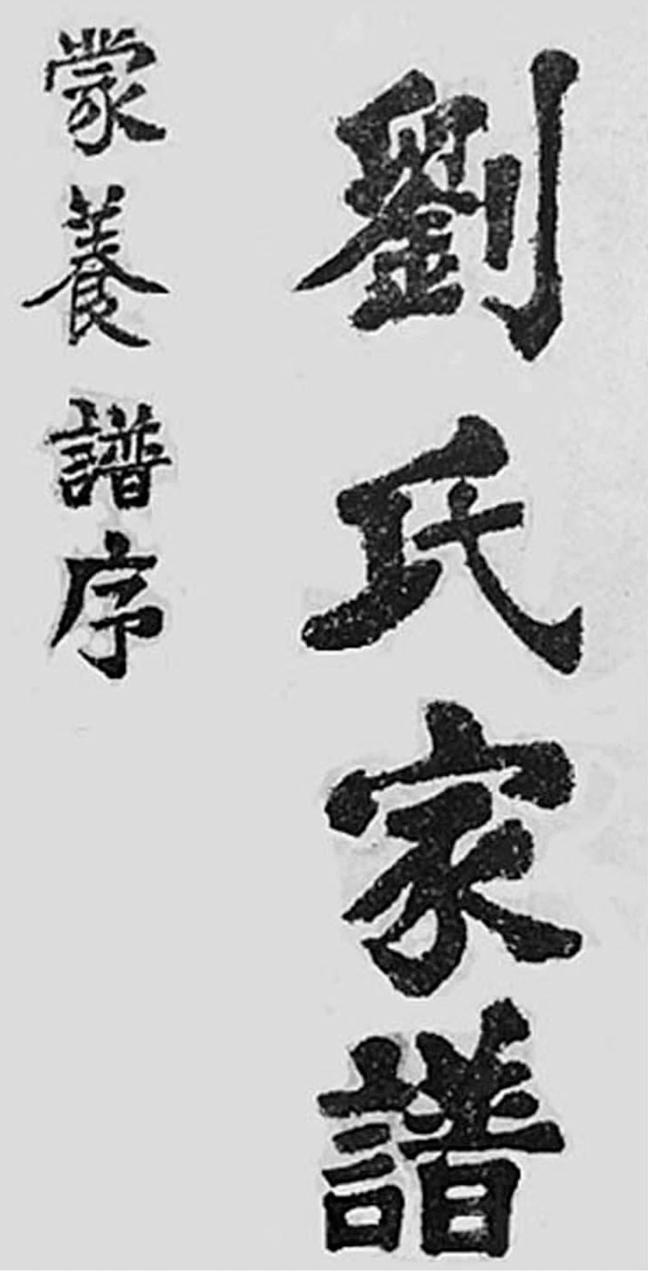 劉氏家譜
蒙養譜序